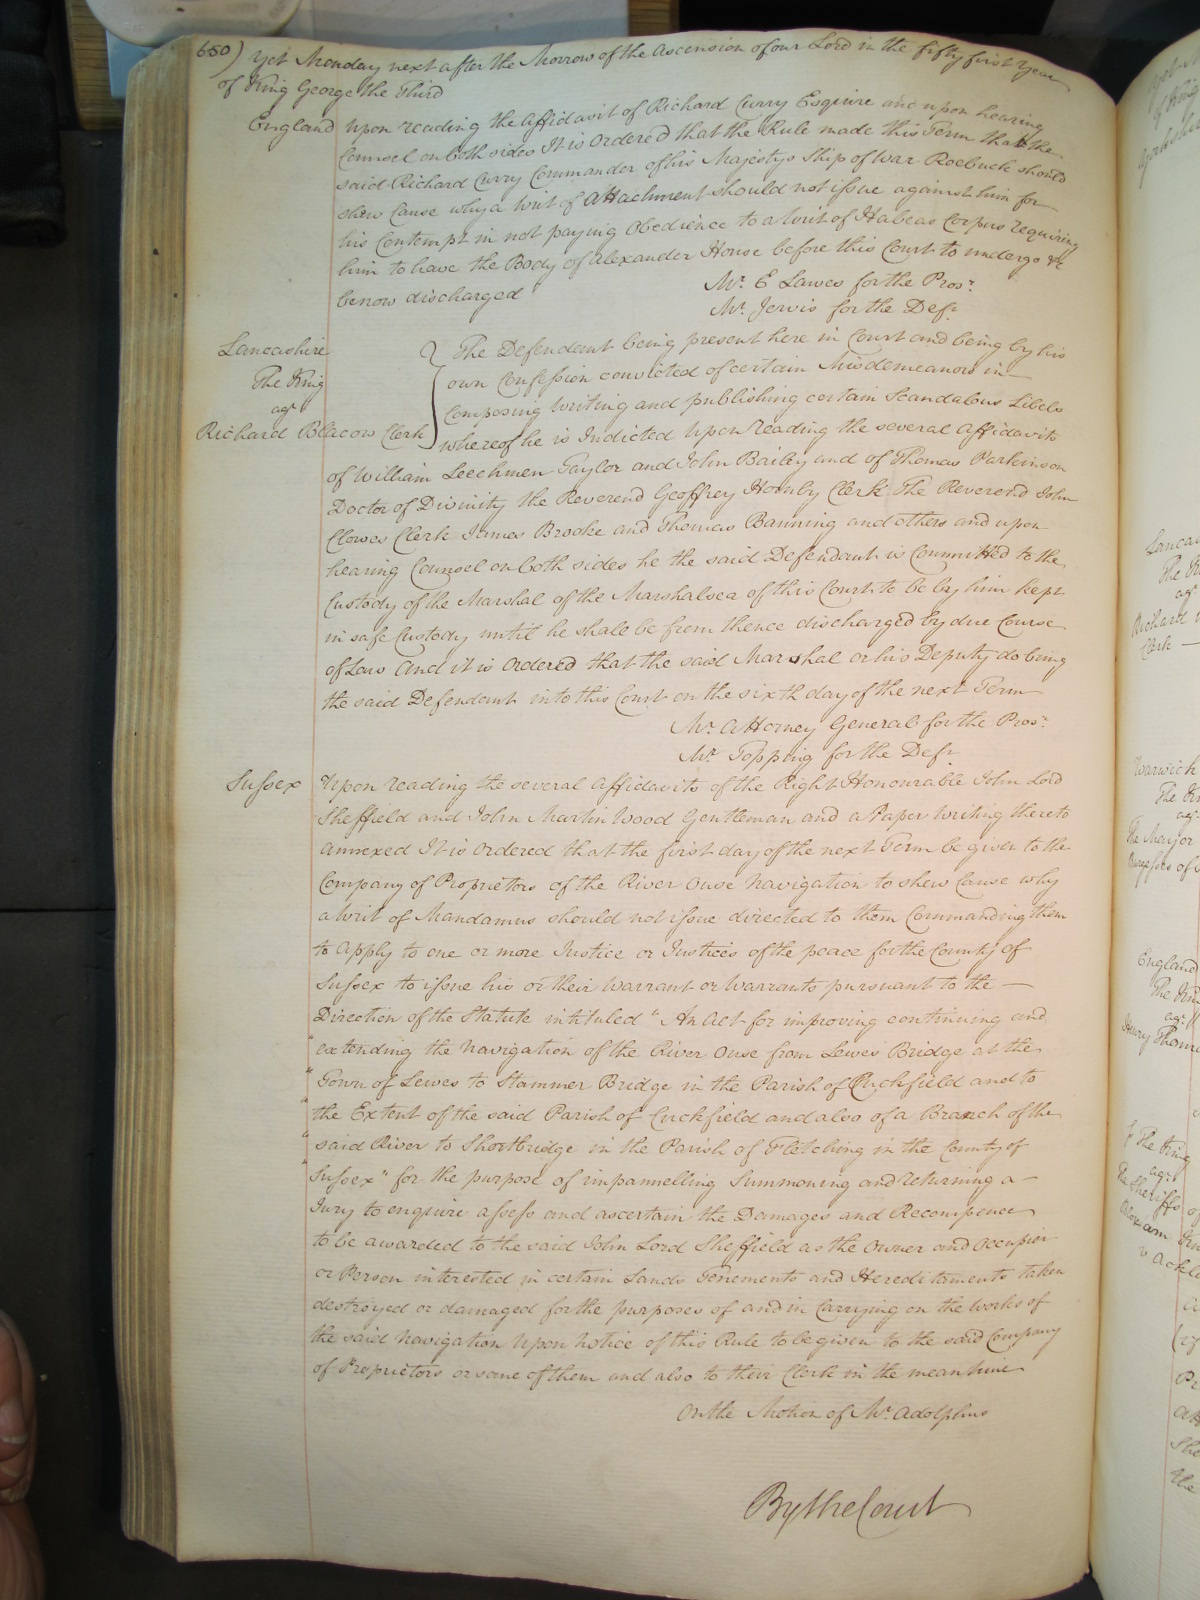 650) Yet Monday next after the Morrow of the Ascension of our Lord in the fifty first Year
of King George the Third
England Upon reading the Affidavit of Richard Curry Esquire and upon hearing
Counsel on both sides It is Ordered that the Rule made this Term that the
said Richard Curry Commander of his Majestys Ship of War Roebuck should
shew Cause why a Writ of Attachment should not issue against him for
his Contempt in not paying Obedience to a Writ of Habeas Corpus requiring
him to have the Body of Alexander House before this Court to undergo &c
be now discharged
Mr. E Lawes for the Prosr.
Mr. Jervis for the Defr.
Lancashire
The King
agt.
Richard Blacow Clerk
The Defendant being present here in Court and being by his
own Confession convicted of certain Misdemeanors in
Composing Writing and publishing certain Scandalous Libels
whereof he is Indicted Upon reading the several Affidavits
of William Leechmen Taylor and John Bailey and of Thomas Parkinson
Doctor of Divinity the Reverend Geoffrey Hornby Clerk The Reverend John
Clowes Clerk James Brooke and Thomas Banning and others and upon
hearing Counsel on both sides he the said Defendant is Committed to the
Custody of the Marshal of the Marshalsea of this Court to be by him kept
in safe Custody until he shall be from thence discharged by due Course
of Law And it is Ordered that the said Marshal or his Deputy do bring
the said Defendant into this Court on the sixth day of the next Term
Mr. Attorney General for the Prosr.
Mr. Topping for the Defr.
Sussex Upon reading the several Affidavits of the Right Honourable John Lord
Sheffield and John Martin Wood Gentleman and a Paper Writing thereto
annexed It is Ordered that the first day of the next Term be given to the
Company of Proprietors of the River Ouse Navigation to shew Cause why
a Writ of Mandamus should not issue directed to them Commanding them
to Apply to one or more Justice or Justices of the peace for the County of
Sussex to issue his or their Warrant or Warrants pursuant to the —
Direction of the Statute intituled "An Act for improving continuing and
"extending the Navigation of the River Ouse from Lewes Bridge at the
"Town of Lewes to Hammer Bridge in the Parish of Cuckfield and to
"the Extent of the said Parish of Cuckfield and also of a Branch of the
"said River to Shortbridge in the Parish of Fletching in the County of
"Sussex" for the purpose of impannelling Summoning and returning a —
Jury to enquire assess and ascertain the Damages and Recompence
to be awarded to the said John Lord Sheffield as the Owner and Occupier
or Person interested in certain Lands Tenements and Hereditaments taken
destroyed or damaged for the purposes of and in Carrying on the Works of
the said Navigation Upon Notice of this Rule to be given to the said Company
of Proprietors or some of them and also to their Clerk in the meantime
On the Motion of Mr. Adolphus
By the Court
Lancas
The K
agt.
Richard
Clerk —
Warwick
The Kin
agt.
The Mayor
Burgesses of
England
The Kin
agt.
Henry Thom
The King
agt.
The Sheriffs